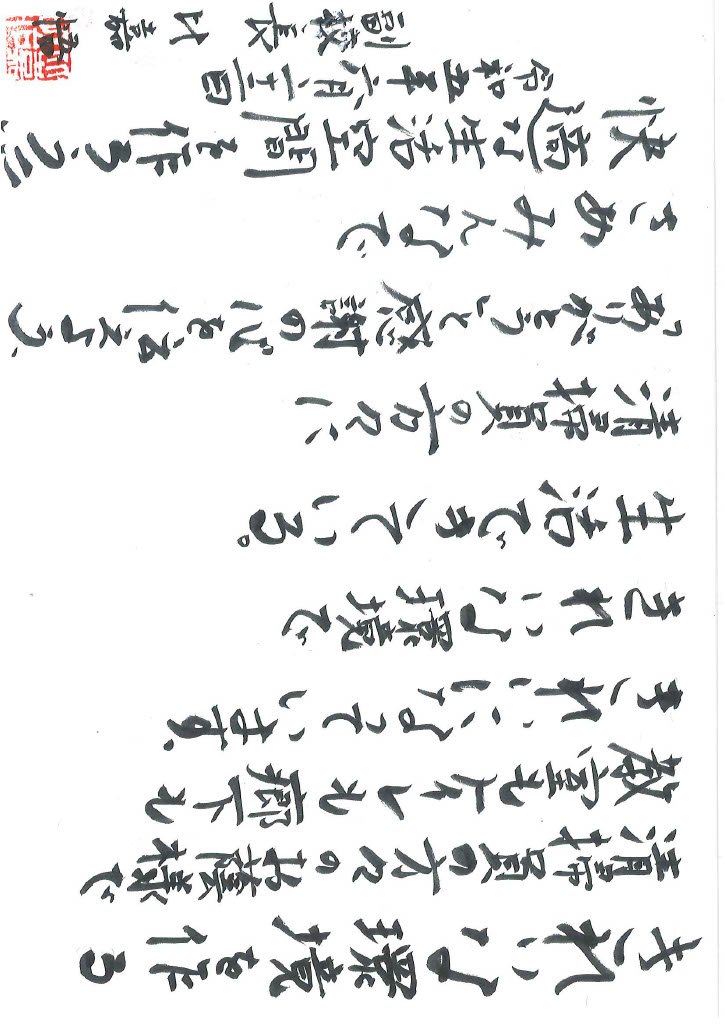 きれいな環境を作る
清掃員の方々のお蔭様で
教室もトイレも廊下も
きれいになっています、
きれいな環境で
生活できている。
清掃員の方々に
「ありがとう」と感謝の心を伝えよう、
さあみんなで
快適な生活空間を作ろう!!
令和五年六月二十二日
副校長 比嘉 悟